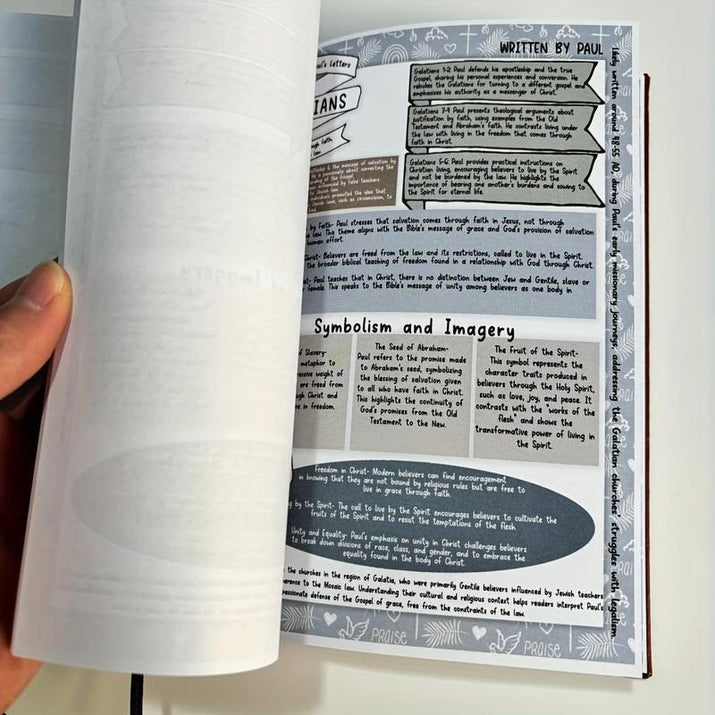 WRITTEN BY PAUL
Paul's letters
IANS
Galatians 1-2: Paul defends his apostleship and the true
Gospel, sharing his personal experiences and conversion. He
rebukes the Galatians for turning to a different gospel and
emphasizes his authority as a messenger of Christ.
Galatians 3-4: Paul presents theological arguments about
justification by faith, using examples from the Old
Testament and Abraham's faith. He contrasts living under
the law with living in the freedom that comes through
faith in Christ.
Galatians 5-6: Paul provides practical instructions on
Christian living, encouraging believers to live by the Spirit
and not be burdened by the law. He highlights the
importance of bearing one another's burdens and sowing to
the Spirit for eternal life.
the message of salvation by
about correcting the
of the Gospel
influenced by false teachers
Jewish law
promoted the idea that
Jewish laws, such as circumcision, to
by Faith- Paul stresses that salvation comes through faith in Jesus, not through
law. This theme aligns with the Bible's message of grace and God's provision of salvation
human effort.
Christ- Believers are freed from the law and its restrictions, called to live in the Spirit.
the broader biblical teaching of freedom found in a relationship with God through Christ.
Paul teaches that in Christ, there is no distinction between Jew and Gentile, slave or
female. This speaks to the Bible's message of unity among believers as one body in
Symbolism and Imagery
of Slavery-
metaphor to
weight of
are freed from
Christ and
live in freedom.
The Seed of Abraham-
Paul refers to the promise made
to Abraham's seed, symbolizing
the blessing of salvation given
to all who have faith in Christ.
This highlights the continuity of
God's promises from the Old
Testament to the New.
The Fruit of the Spirit-
This symbol represents the
character traits produced in
believers through the Holy Spirit,
such as love, joy, and peace. It
contrasts with the "works of the
flesh" and shows the
transformative power of living in
the Spirit.
Freedom in Christ- Modern believers can find encouragement
in knowing that they are not bound by religious rules but are free to
live in grace through faith.
by the Spirit- The call to live by the Spirit encourages believers to cultivate the
fruits of the Spirit and to resist the temptations of the flesh.
Unity and Equality- Paul's emphasis on unity in Christ challenges believers
to break down divisions of race, class, and gender, and to embrace the
equality found in the body of Christ.
the churches in the region of Galatia, who were primarily Gentile believers influenced by Jewish teachers
to the Mosaic law. Understanding their cultural and religious context helps readers interpret Paul's
passionate defense of the Gospel of grace, free from the constraints of the law.
written around 48-55 AD, during Paul's early missionary journeys, addressing the Galatian churches' struggles with legalism.
PRAISE
PRAISE